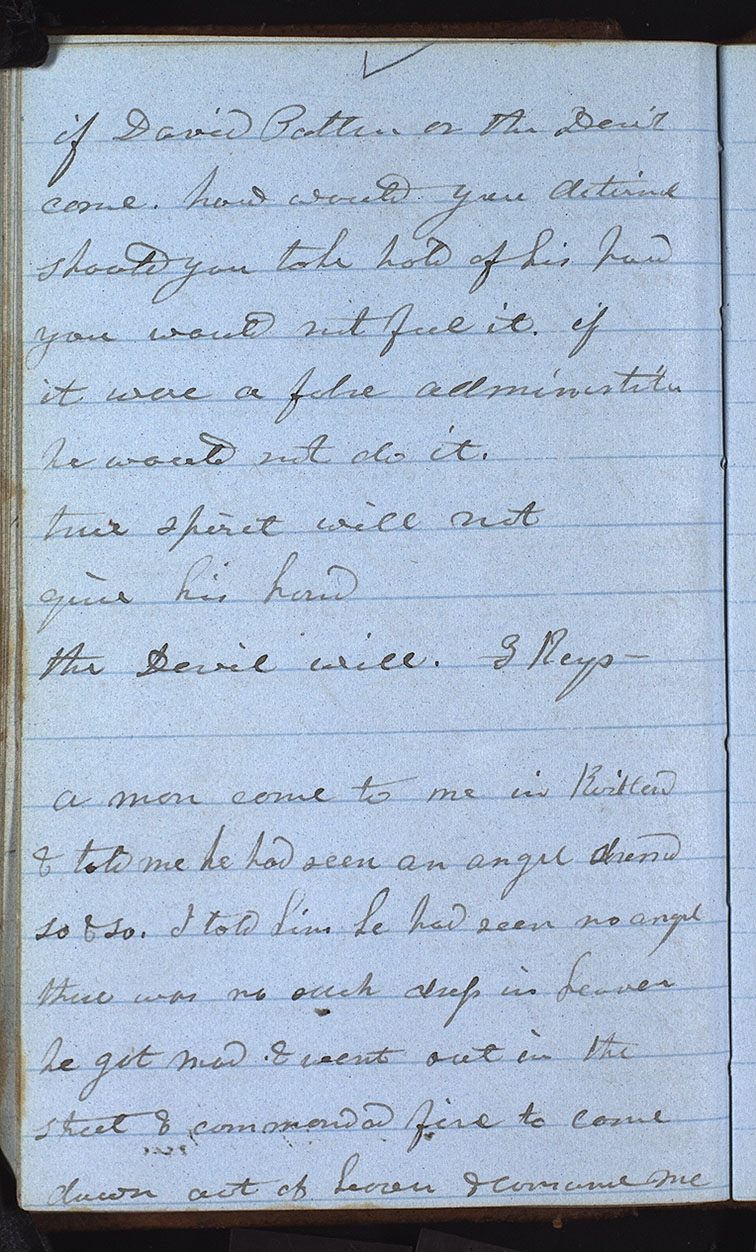 if David Patten or the Devil
come. how would you determine
should you take hold of his hand
you would not feel it. if
it were a false administrter
he would not do it.
true spirit will not
give his hand
the Devil will. 3 Keys–
a man come to me in Kirtland
& told me he had seen an angel dressed
so & so. I told him he had seen no angel
there was no such dress in heaven
he got mad & went out in the
street & commanded fire to come
down out of heaven & consume me